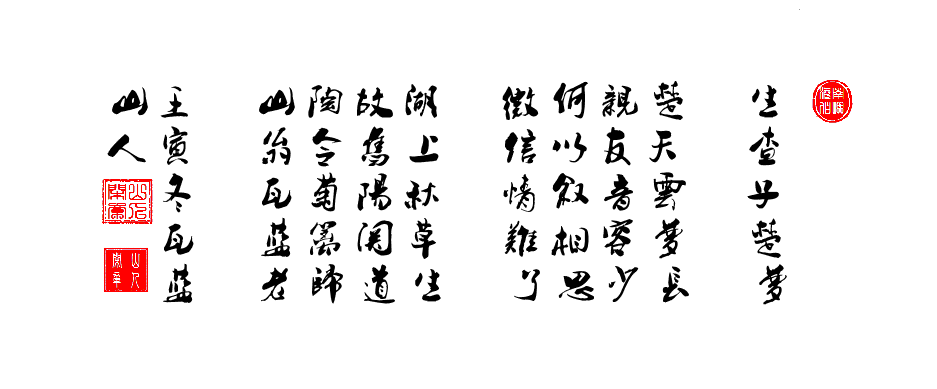 生查子楚夢
楚天雲夢長
親友音容少
何以敘相思
微信情難了
湖上秋草生
故舊陽関道
陶令菊籬歸
山翁瓦藍老
王寅冬瓦藍
山人